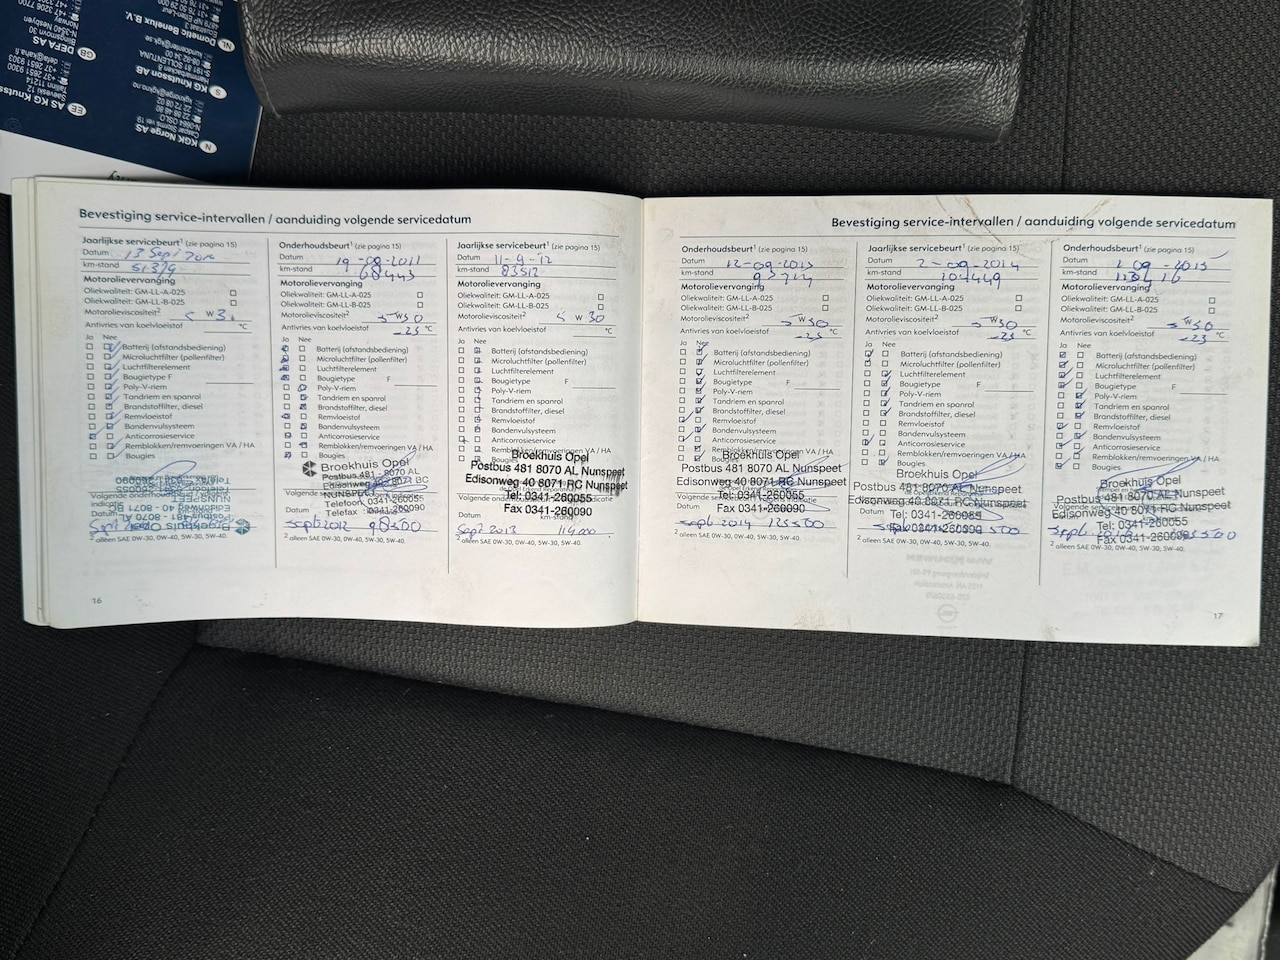 N KGK Norge AS
Caspar Storms vei 19
N-0664 OSLO
22 88 48 80
22 72 08 02
kgknorge@kgk.no
S KG Knutsson AB
Hammarbacken 8
S-191 81 SOLLENTUNA
08-92 34 00
kundcenter@kgk.se
NL Dometic Benelux B.V.
Ecustraat 3
4879 NP Etten-Leur
EE AS KG Knutss
Saeveski 12
Tallinn 11214
+37 2651 9300
+37 2651 9303
GB DEFA AS
Blingsmovn 30
N-3540 Nesbyen
Norway
Bevestiging service-intervallen / aanduiding volgende servicedatum
Jaarlijkse servicebeurt¹ (zie pagina 15)
Datum 13 Sept 2010
km-stand 51379
Motorolievervanging
Oliekwaliteit: GM-LL-A-025
Oliekwaliteit: GM-LL-B-025
Motorolieviscositeit² 5 W 30
Antivries van koelvloeistof °C
Ja Nee
Batterij (afstandsbediening)
Microluchtfilter (pollenfilter)
Luchtfilterelement
Bougietype F
Poly-V-riem
Tandriem en spanrol
Brandstoffilter, diesel
Remvloeistof
Bandenvulsysteem
Anticorrosieservice
Remblokken/remvoeringen VA / HA
Bougies
Broekhuis Opel
Postbus 481 - 8070 AL
Edisonweg 40 - 8071 BC
NUNSPEET
Datum
² alleen SAE 0W-30, 0W-40, 5W-30, 5W-40.
16
Onderhoudsbeurt¹ (zie pagina 15)
Datum 19-09-2011
km-stand 68443
Motorolievervanging
Oliekwaliteit: GM-LL-A-025
Oliekwaliteit: GM-LL-B-025
Motorolieviscositeit² 5 W 30
Antivries van koelvloeistof -25 °C
Ja Nee
Batterij (afstandsbediening)
Microluchtfilter (pollenfilter)
Luchtfilterelement
Bougietype F
Poly-V-riem
Tandriem en spanrol
Brandstoffilter, diesel
Remvloeistof
Bandenvulsysteem
Anticorrosieservice
Remblokken/remvoeringen VA / HA
Bougies
Broekhuis Opel
Postbus 481 - 8070 AL
Edisonweg 40 - 8071 BC
NUNSPEET
Telefoon 0341-260055
Telefax 0341-260090
Datum
sept 2012 98500
² alleen SAE 0W-30, 0W-40, 5W-30, 5W-40.
Jaarlijkse servicebeurt¹ (zie pagina 15)
Datum 11-9-'12
km-stand 83512
Motorolievervanging
Oliekwaliteit: GM-LL-A-025
Oliekwaliteit: GM-LL-B-025
Motorolieviscositeit² 5 W 30
Antivries van koelvloeistof °C
Ja Nee
Batterij (afstandsbediening)
Microluchtfilter (pollenfilter)
Luchtfilterelement
Bougietype F
Poly-V-riem
Tandriem en spanrol
Brandstoffilter, diesel
Remvloeistof
Bandenvulsysteem
Anticorrosieservice
Remblokken/remvoeringen VA / HA
Bougies
Broekhuis Opel
Postbus 481 8070 AL Nunspeet
Edisonweg 40 8071 RC Nunspeet
Tel: 0341-260055
Fax 0341-260090
Datum km-stand
Sept 2013 114.000
² alleen SAE 0W-30, 0W-40, 5W-30, 5W-40.
Bevestiging service-intervallen / aanduiding volgende servicedatum
Onderhoudsbeurt¹ (zie pagina 15)
Datum 12-09-2013
km-stand
Motorolievervanging
Oliekwaliteit: GM-LL-A-025
Oliekwaliteit: GM-LL-B-025
Motorolieviscositeit² 5 W 30
Antivries van koelvloeistof -25 °C
Ja Nee
Batterij (afstandsbediening)
Microluchtfilter (pollenfilter)
Luchtfilterelement
Bougietype F
Poly-V-riem
Tandriem en spanrol
Brandstoffilter, diesel
Remvloeistof
Bandenvulsysteem
Anticorrosieservice
Remblokken/remvoeringen VA / HA
Bougies
Broekhuis Opel
Postbus 481 8070 AL Nunspeet
Edisonweg 40 8071 RC Nunspeet
Tel: 0341-260055
Fax 0341-260090
Datum
sept 2014 125500
² alleen SAE 0W-30, 0W-40, 5W-30, 5W-40.
Jaarlijkse servicebeurt¹ (zie pagina 15)
Datum 2-09-2014
km-stand 104449
Motorolievervanging
Oliekwaliteit: GM-LL-A-025
Oliekwaliteit: GM-LL-B-025
Motorolieviscositeit² 5 W 30
Antivries van koelvloeistof -25 °C
Ja Nee
Batterij (afstandsbediening)
Microluchtfilter (pollenfilter)
Luchtfilterelement
Bougietype F
Poly-V-riem
Tandriem en spanrol
Brandstoffilter, diesel
Remvloeistof
Bandenvulsysteem
Anticorrosieservice
Remblokken/remvoeringen VA / HA
Bougies
Broekhuis Opel
Postbus 481 8070 AL Nunspeet
Edisonweg 40 8071 RC Nunspeet
Tel: 0341-260055
Fax 0341-260090
Datum
² alleen SAE 0W-30, 0W-40, 5W-30, 5W-40.
Onderhoudsbeurt¹ (zie pagina 15)
Datum 2-09-2015
km-stand
Motorolievervanging
Oliekwaliteit: GM-LL-A-025
Oliekwaliteit: GM-LL-B-025
Motorolieviscositeit² 5 W 30
Antivries van koelvloeistof -25 °C
Ja Nee
Batterij (afstandsbediening)
Microluchtfilter (pollenfilter)
Luchtfilterelement
Bougietype F
Poly-V-riem
Tandriem en spanrol
Brandstoffilter, diesel
Remvloeistof
Bandenvulsysteem
Anticorrosieservice
Remblokken/remvoeringen VA / HA
Bougies
Broekhuis Opel
Postbus 481 8070 AL Nunspeet
Edisonweg 40 8071 RC Nunspeet
Tel: 0341-260055
Fax 0341-260090
Datum
² alleen SAE 0W-30, 0W-40, 5W-30, 5W-40.
17